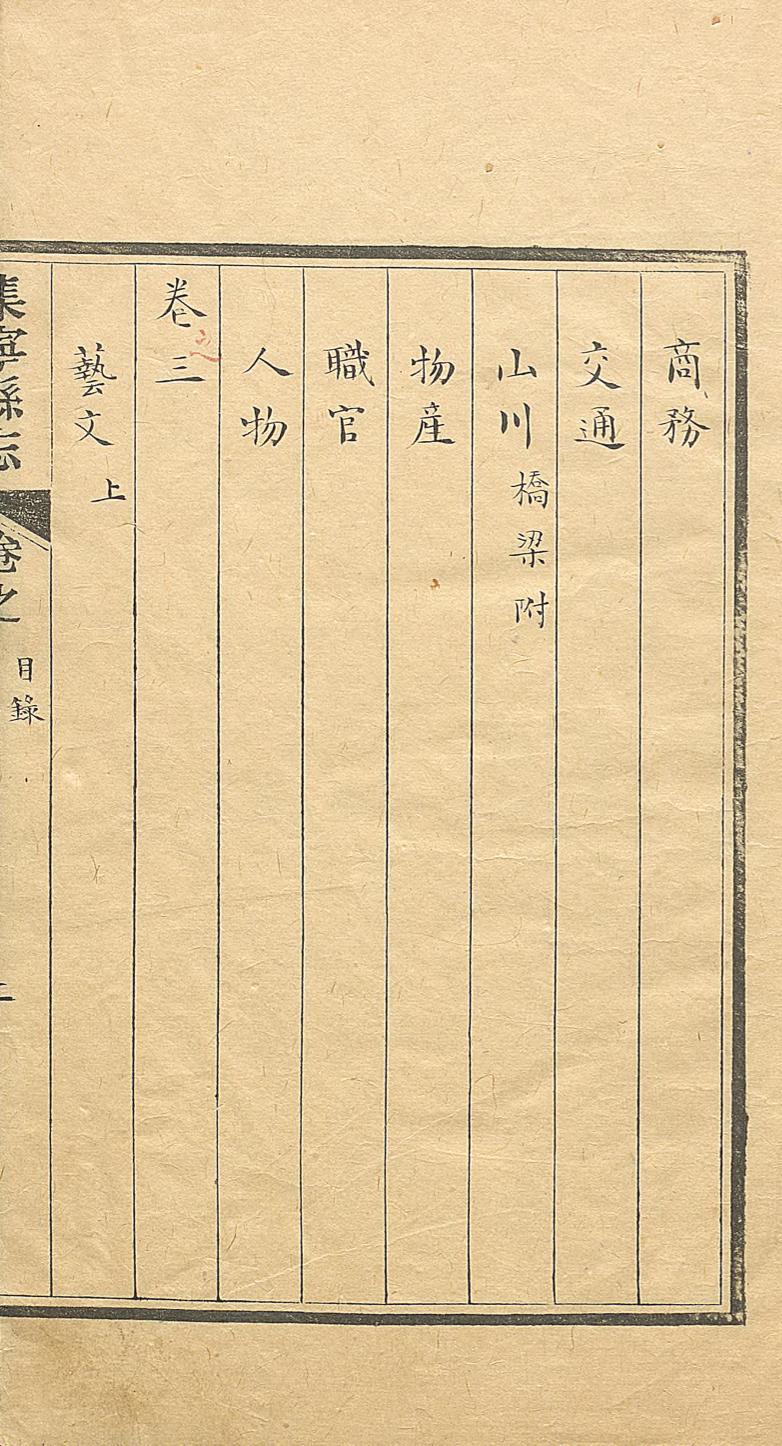 商務
交通
山川 橋梁附
物産
職官
人物
卷之三
藝文 上
集寧縣志 卷之 目錄 二